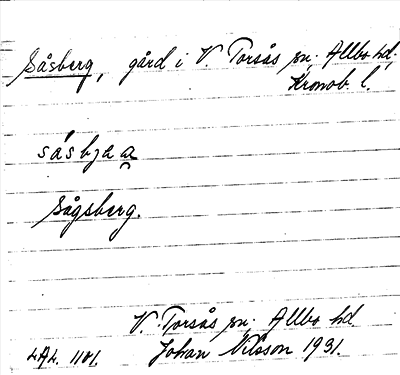 Såsberg, gård i V. Torsås sn. Allbo hd.
Kronob. l.
Sågsberg.
V. Torsås sn. Allbo hd.
LAL. 1181. Johan Nilsson 1931.